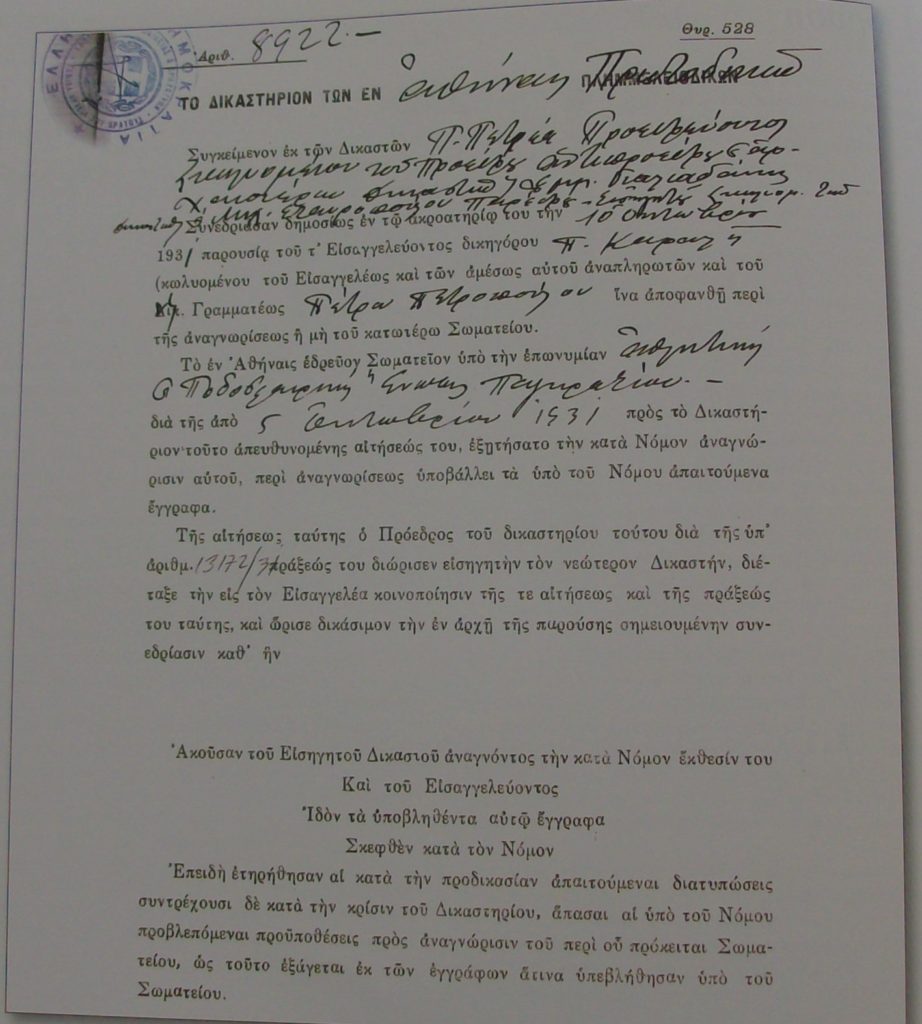 Θυρ. 528
Ἀριθ. 8922.—
ΕΛΛΗ ΗΜΟΚΡΑΤΙΑ
ΤΟ ΔΙΚΑΣΤΗΡΙΟΝ ΤΩΝ ΕΝ Ἀθήναις Πρωτοδικῶν
Συγκείμενον ἐκ τῶν Δικαστῶν Π. Πετρέα Προεδρεύοντος
κωλυομένου τοῦ Προέδρου
Συνεδριάσαν δημοσίως ἐν τῷ ἀκροατηρίῳ του τὴν 10 Ὀκτωβρίου
1931 παρουσίᾳ τοῦ τ' Εἰσαγγελεύοντος δικηγόρου Π.
(κωλυομένου τοῦ Εἰσαγγελέως καὶ τῶν ἀμέσως αὐτοῦ ἀναπληρωτῶν καὶ τοῦ
Γραμματέως Πέτρου Πετροπούλου ἵνα ἀποφανθῇ περὶ
τῆς ἀναγνωρίσεως ἢ μὴ τοῦ κατωτέρω Σωματείου.
Τὸ ἐν Ἀθήναις ἑδρεῦον Σωματεῖον ὑπὸ τὴν ἐπωνυμίαν Ἀθλητικὴ
Ποδοσφαιρικὴ Ἕνωσις Παγκρατίου.—
διὰ τῆς ἀπὸ 5 Ὀκτωβρίου 1931 πρὸς τὸ Δικαστή-
ριον τοῦτο ἀπευθυνομένης αἰτήσεώς του, ἐξῃτήσατο τὴν κατὰ Νόμον ἀναγνώ-
ρισιν αὐτοῦ, περὶ ἀναγνωρίσεως ὑποβάλλει τὰ ὑπὸ τοῦ Νόμου ἀπαιτούμενα
ἔγγραφα.
Τῆς αἰτήσεως ταύτης ὁ Πρόεδρος τοῦ δικαστηρίου τούτου διὰ τῆς ὑπ'
ἀριθμ. 13172/31 πράξεώς του διώρισεν εἰσηγητὴν τὸν νεώτερον Δικαστήν, διέ-
ταξε τὴν εἰς τὸν Εἰσαγγελέα κοινοποίησιν τῆς τε αἰτήσεως καὶ τῆς πράξεώς
του ταύτης, καὶ ὥρισε δικάσιμον τὴν ἐν ἀρχῇ τῆς παρούσης σημειουμένην συν-
εδρίασιν καθ' ἣν
Ἀκοῦσαν τοῦ Εἰσηγητοῦ Δικαστοῦ ἀναγνόντος τὴν κατὰ Νόμον ἔκθεσίν του
Καὶ τοῦ Εἰσαγγελεύοντος
Ἰδὸν τὰ ὑποβληθέντα αὐτῷ ἔγγραφα
Σκεφθὲν κατὰ τὸν Νόμον
Ἐπειδὴ ἐτηρήθησαν αἱ κατὰ τὴν προδικασίαν ἀπαιτούμεναι διατυπώσεις
συντρέχουσι δὲ κατὰ τὴν κρίσιν τοῦ Δικαστηρίου, ἅπασαι αἱ ὑπὸ τοῦ Νόμου
προβλεπόμεναι προϋποθέσεις πρὸς ἀναγνώρισιν τοῦ περὶ οὗ πρόκειται Σωμα-
τείου, ὡς τοῦτο ἐξάγεται ἐκ τῶν ἐγγράφων ἅτινα ὑπεβλήθησαν ὑπὸ τοῦ
Σωματείου.